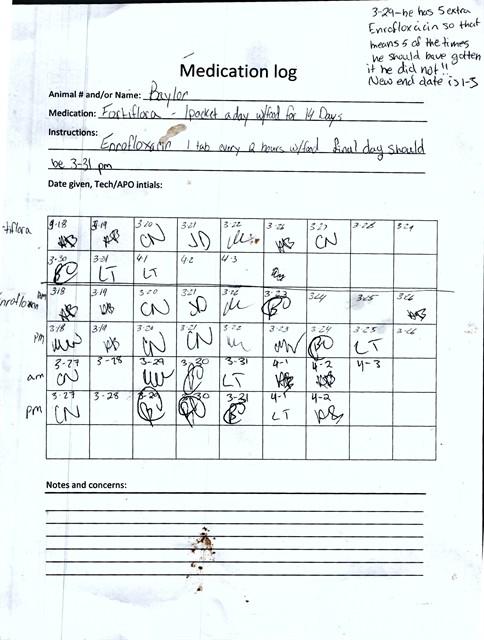 3-29-he has 5 extra
Enrofloxicin so that
means 5 of the times
he should have gotten
it he did not!!
New end date is
Medication log
Animal # and/or Name: Baylor
Medication: Fortiflora - 1 packet a day w/food for 14 Days
Instructions:
Enrofloxacin 1 tab every 12 hours w/food final day should
be 3-31 pm
Date given, Tech/APO intials:
3-18 3-19 3-20 3-21 3-22 3-26 3-27 3-28 3-29
AB AB CN JD AB CN
3-30 3-31 4-1 4-2 4-3
BO LT LT
am
3-18 3-19 3-20 3-21 3-22 3-23 3-24 3-25 3-26
AB AB CN JD BO AB
pm 3-18 3-19 3-20 3-21 3-22 3-23 3-24 3-25 3-26
MW AB CN CN MW BO LT
3-27 3-28 3-29 3-30 3-31 4-1 4-2 4-3
am CN MW BO LT AB AB
3-27 3-28 3-29 3-30 3-31 4-1 4-2
pm CN BO BO BO LT AB
Notes and concerns: